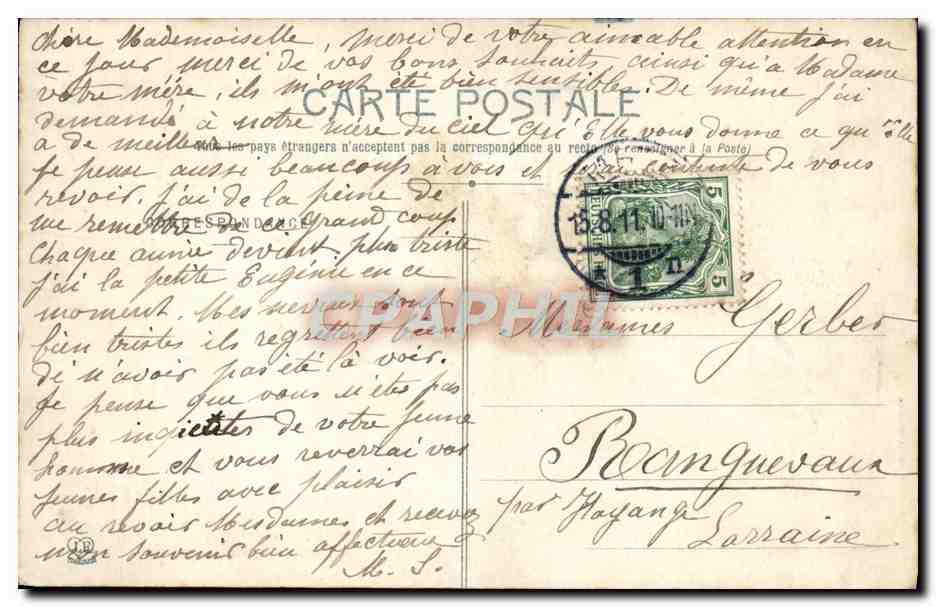 Chère Mademoiselle, merci de votre aimable attention en
ce jour merci de vos bons souhaits, ainsi qu'a Madame
votre mère, ils m'ont été bien sensibles. De même j'ai
CARTE POSTALE
demandé à notre mère du ciel qu'Elle vous donne ce qu'elle
a de meilleur
Tous les pays étrangers n'acceptent pas la correspondance au recto (Se renseigner à la Poste)
Je pense aussi beaucoup à vous et contente de vous
revoir. J'ai de la peine de
me remettre ce grand coup
CORRESPONDANCE
chaque année devient plus triste
j'ai la petite Eugénie en ce
moment. Mes neveux sont
bien tristes ils regrettent bien
di n'avoir pas été là voir.
Je pense que vous n'êtes pas
plus inquiètes de votre jeune
homme et vous reverrai vos
jeunes filles avec plaisir
au revoir Mesdames et recevez
mon souvenir bien affectueux
M. S.
15.8.11. 10-11
* 1 n
5
5
CPAPHIL
Mesdames Gerber
Ranguevaux
par Hayange
Lorraine